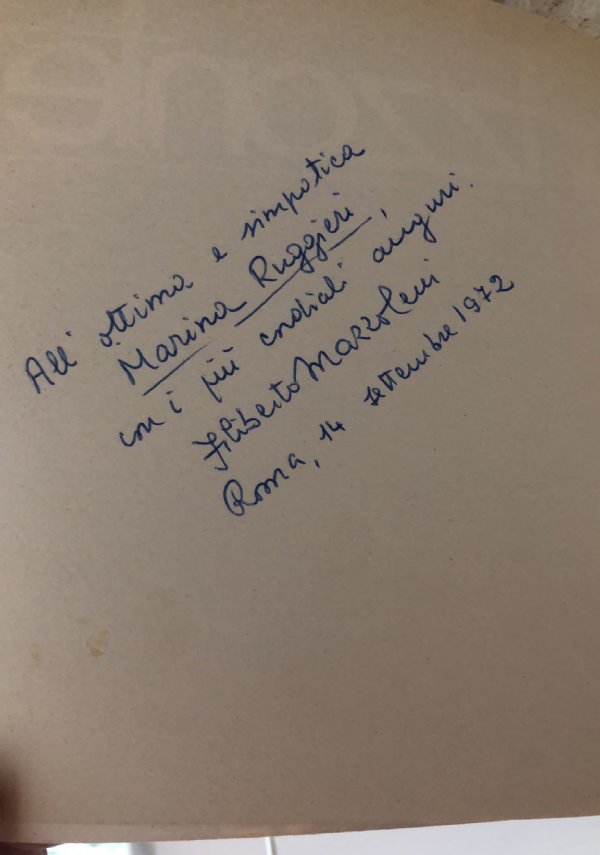 All'ottima e simpatica
Marina Ruggieri,
con i più cordiali auguri.
Filiberto Mazzoleni
Roma, 14 settembre 1972